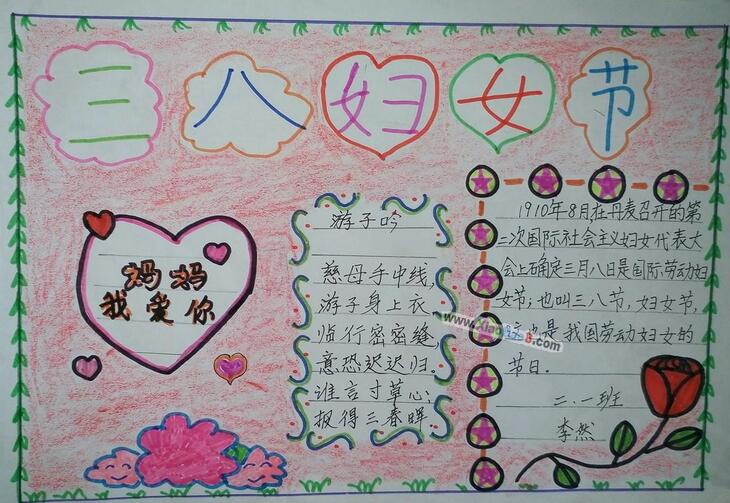 三八妇女节
妈妈
我爱你
游子吟
慈母手中线，
游子身上衣
临行密密缝，
意恐迟迟归。
谁言寸草心；
报得三春晖
1910年8月在丹麦召开的第
二次国际社会主义妇女代表大
会上确定三月八日是国际劳动妇
女节；也叫三八节，妇女节，
也是我国劳动妇女的
节日。
二.一班
李然